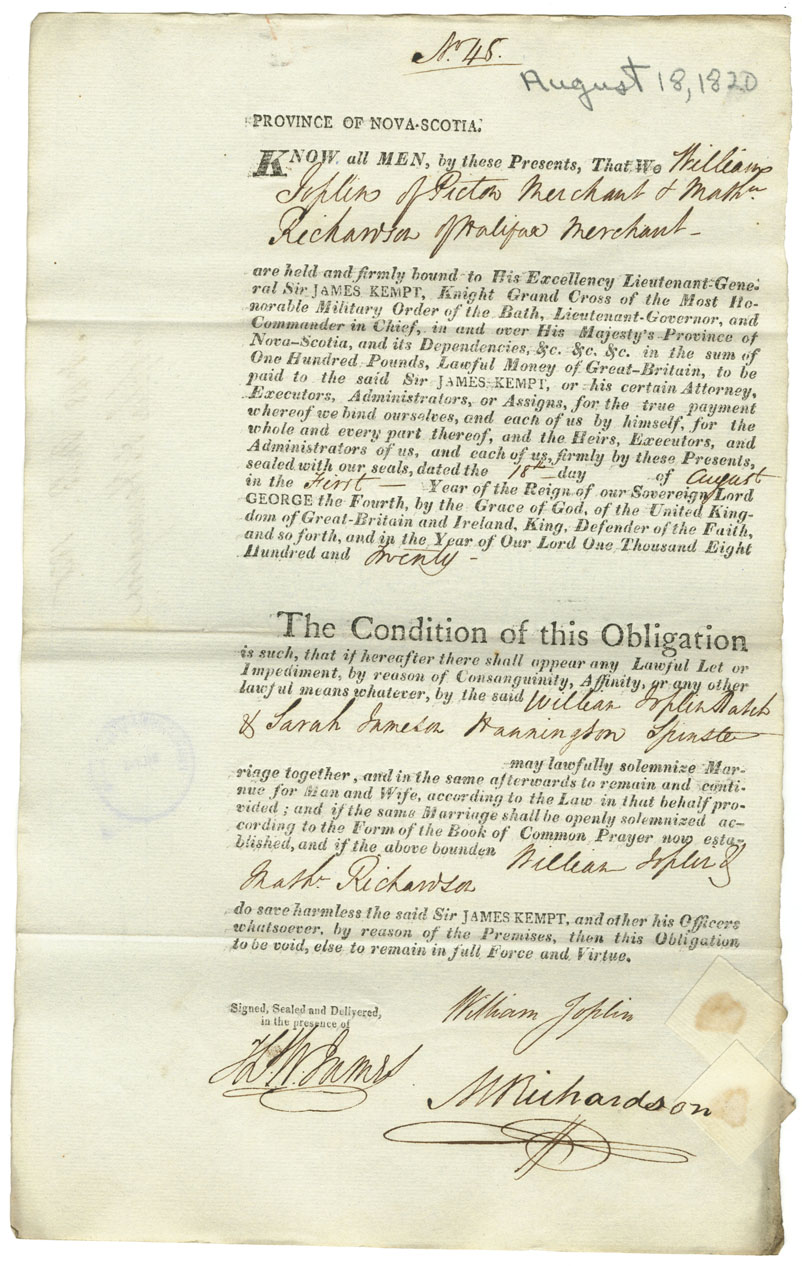 No. 48.
August 18, 1820
PROVINCE OF NOVA-SCOTIA.
KNOW all MEN, by these Presents, That We William
Joplin of Pictou Merchant & Mathw
Richardson of Halifax Merchant —
are held and firmly bound to His Excellency Lieutenant-Gene-
ral Sir JAMES KEMPT, Knight Grand Cross of the Most Ho-
norable Military Order of the Bath, Lieutenant-Governor, and
Commander in Chief, in and over His Majesty's Province of
Nova-Scotia, and its Dependencies, &c. &c. &c. in the sum of
One Hundred Pounds, Lawful Money of Great-Britain, to be
paid to the said Sir JAMES KEMPT, or his certain Attorney,
Executors, Administrators, or Assigns, for the true payment
whereof we bind ourselves, and each of us by himself, for the
whole and every part thereof, and the Heirs, Executors, and
Administrators of us, and each of us, firmly by these Presents,
sealed with our seals, dated the 18th day of August
in the First — Year of the Reign of our Sovereign Lord
GEORGE the Fourth, by the Grace of God, of the United King-
dom of Great-Britain and Ireland, King, Defender of the Faith,
and so forth, and in the Year of Our Lord One Thousand Eight
Hundred and Twenty —
The Condition of this Obligation
is such, that if hereafter there shall appear any Lawful Let or
Impediment, by reason of Consanguinity, Affinity, or any other
lawful means whatever, by the said William Joplin Batch
& Sarah Jameson Hannington Spinster
may lawfully solemnize Mar-
riage together, and in the same afterwards to remain and conti-
nue for Man and Wife, according to the Law in that behalf pro-
vided; and if the same Marriage shall be openly solemnized ac-
cording to the Form of the Book of Common Prayer now esta-
blished, and if the above bounden William Joplin &
Mathw Richardson
do save harmless the said Sir JAMES KEMPT, and other his Officers
whatsoever, by reason of the Premises, then this Obligation
to be void, else to remain in full Force and Virtue.
Signed, Sealed and Delivered,
in the presence of
William Joplin
W. James
M Richardson